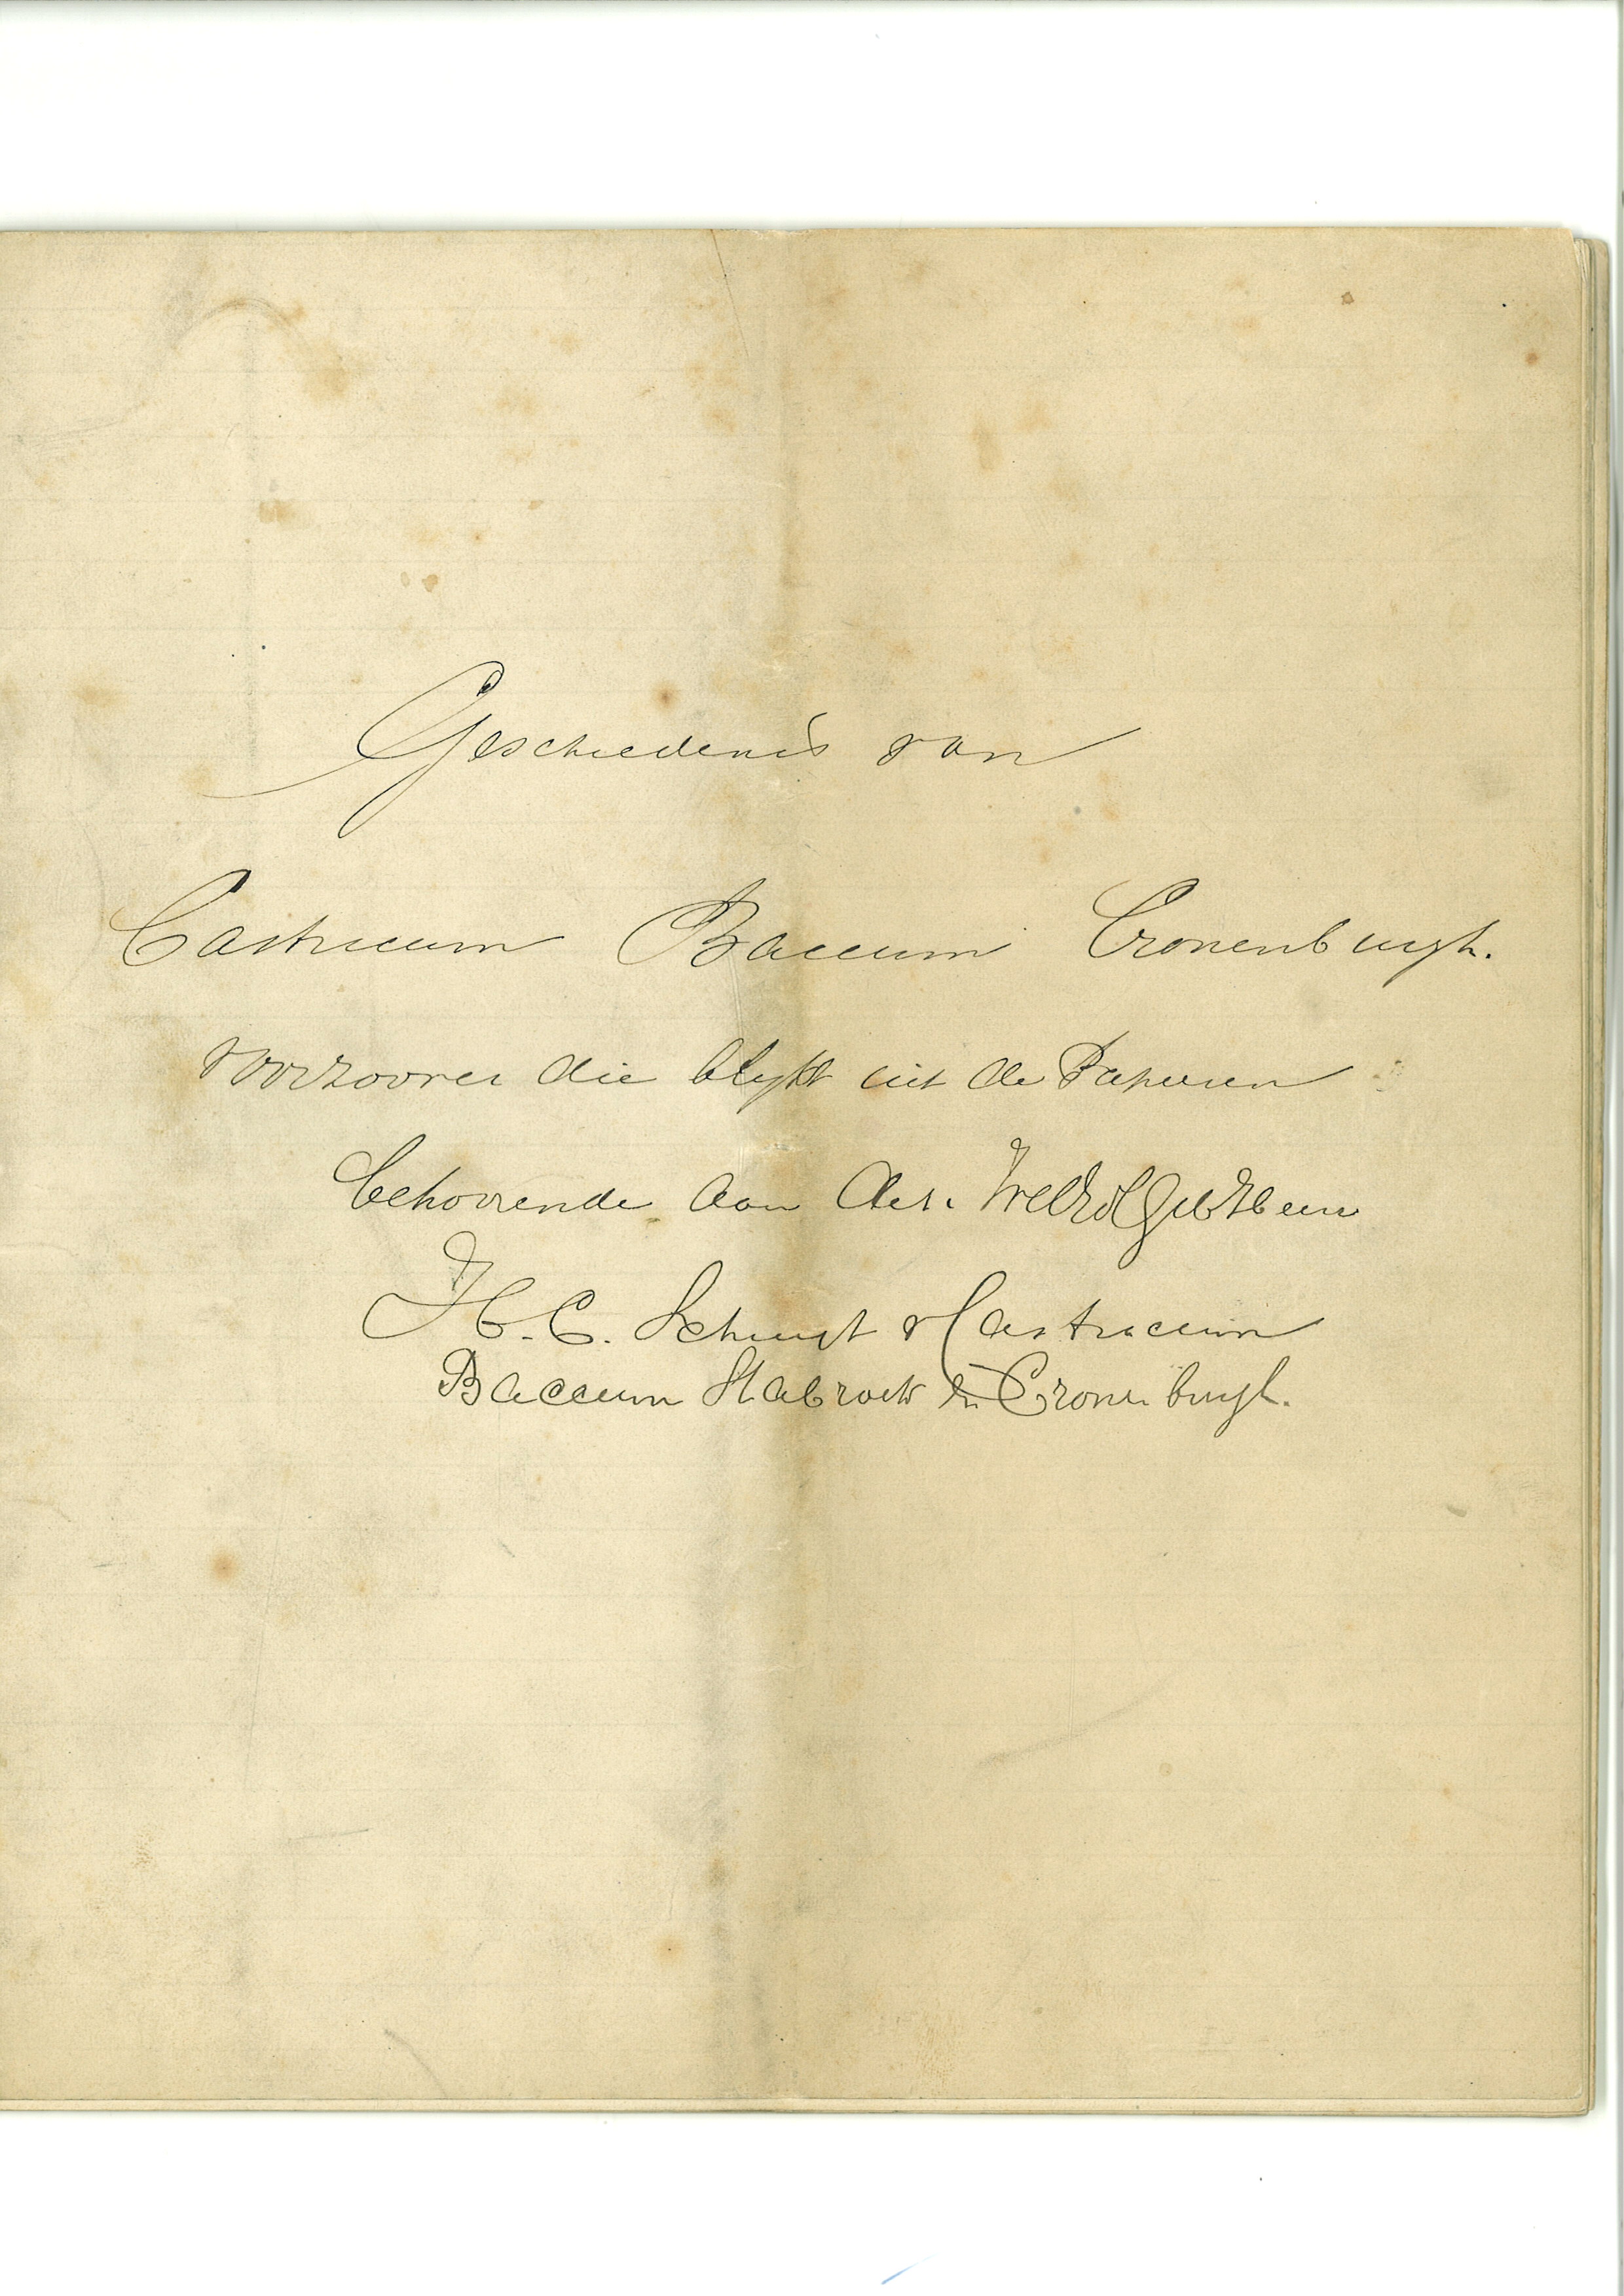 Geschiedenis van
Castricum Baccum Cronenburgh.
voorzoover die blijkt uit de Papieren
behoorende aan den WelEdGeb Heer
H. C. Schuyt v Castricum
Baccum Stabroek en Cronenburgh.